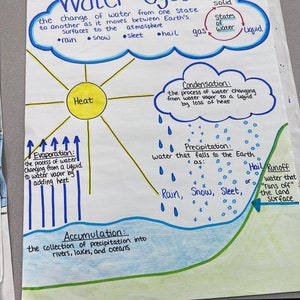 Water Cycle
the change of water from one state
to another as it moves between Earth's
surfaces to the atmosphere
•rain •snow •sleet •hail
solid
States
of
water
gas
liquid
Heat
Condensation:
the process of water changing
from water vapor to a liquid
by loss of heat
Evaporation:
the process of water
changing from a liquid
to water vapor by
adding heat
Precipitation:
water that falls to the Earth
as:
Rain, Snow, Sleet,
or Hail
Runoff
water that
"runs off"
the land
surface
Accumulation:
the collection of precipitation into
rivers, lakes, and oceans